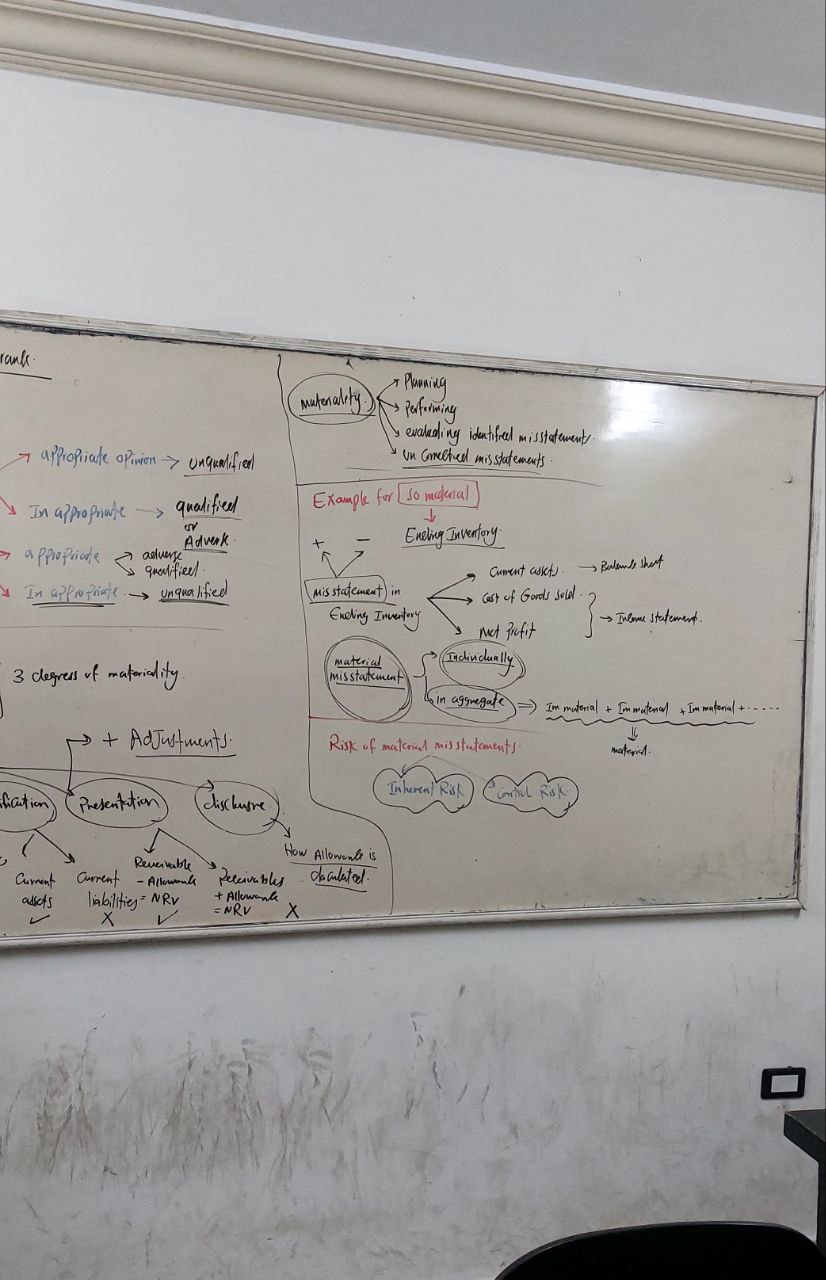 appropriate opinion → unqualified
In appropriate → qualified
or
Adverse
appropriate
adverse
qualified.
In appropriate → unqualified
3 degrees of materiality.
+ Adjustments.
Presentation
disclusure
Current
assets
✓
Current
liabilities
X
Receivable
- Allowance
= NRV
✓
Receivables
+ Allowance
= NRV
X
How Allowance is
calculated.
materiality.
Planning
performing
evaluating identified misstatements.
un corrected misstatements.
Example for so material
↓
Ending Inventory.
+ -
misstatement in
Ending Inventory
Current assets. → Balance sheet
Cost of Goods sold.
Net Profit
→ Income statement.
material
misstatement
Individually
in aggregate ⇒ Im material + Im material + Im material + .....
⇓
material.
Risk of material misstatements.
Inherent Risk
Control Risk